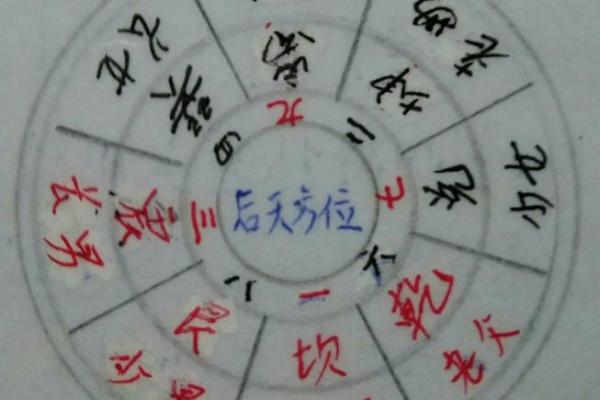 后天方位
九
二
七
六
一
八
三
四
离
坤
兑
乾
坎
艮
震
巽
老母
少女
老父
少男
长男
长女